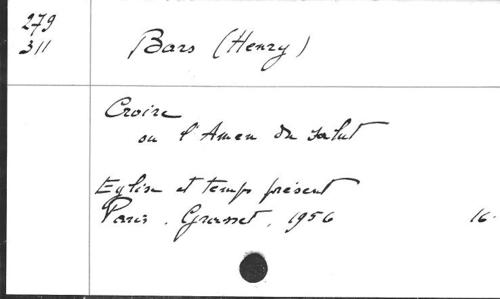 279
311
Bars (Henry)
Croire
ou l'Amen du salut
Eglise et temps présent
Paris. Grasset, 1956 16.